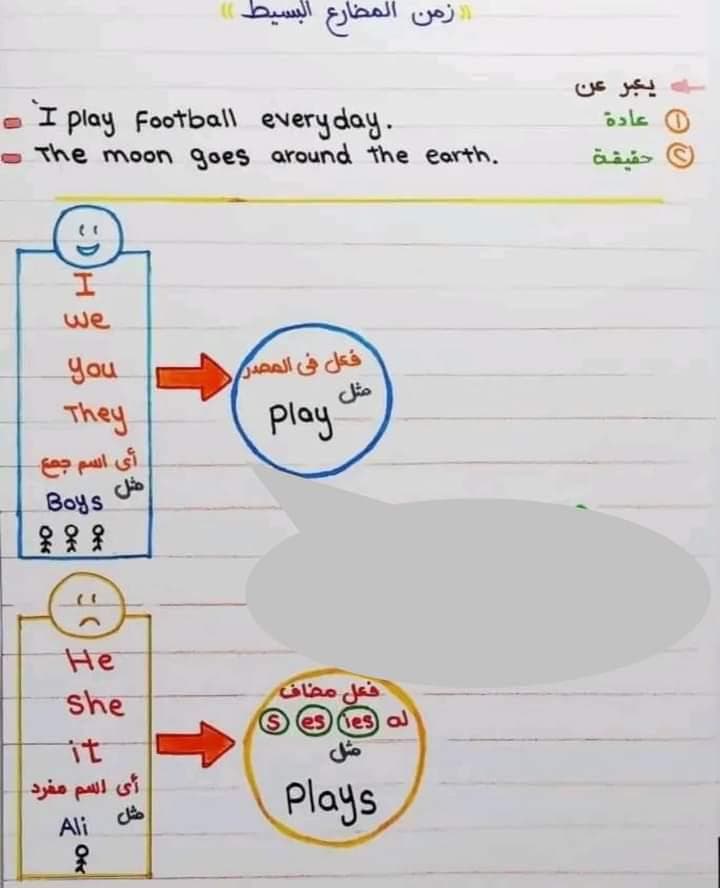 «زمن المضارع البسيط»
يعبر عن
١ عادة
I play Football everyday.
٢ حقيقة
The moon goes around the earth.
I
we
you
They
أى اسم جمع
مثل
Boys
فعل فى المصدر
مثل
Play
He
She
it
أى اسم مفرد
مثل
Ali
فعل مضاف
له s es ies
مثل
Plays